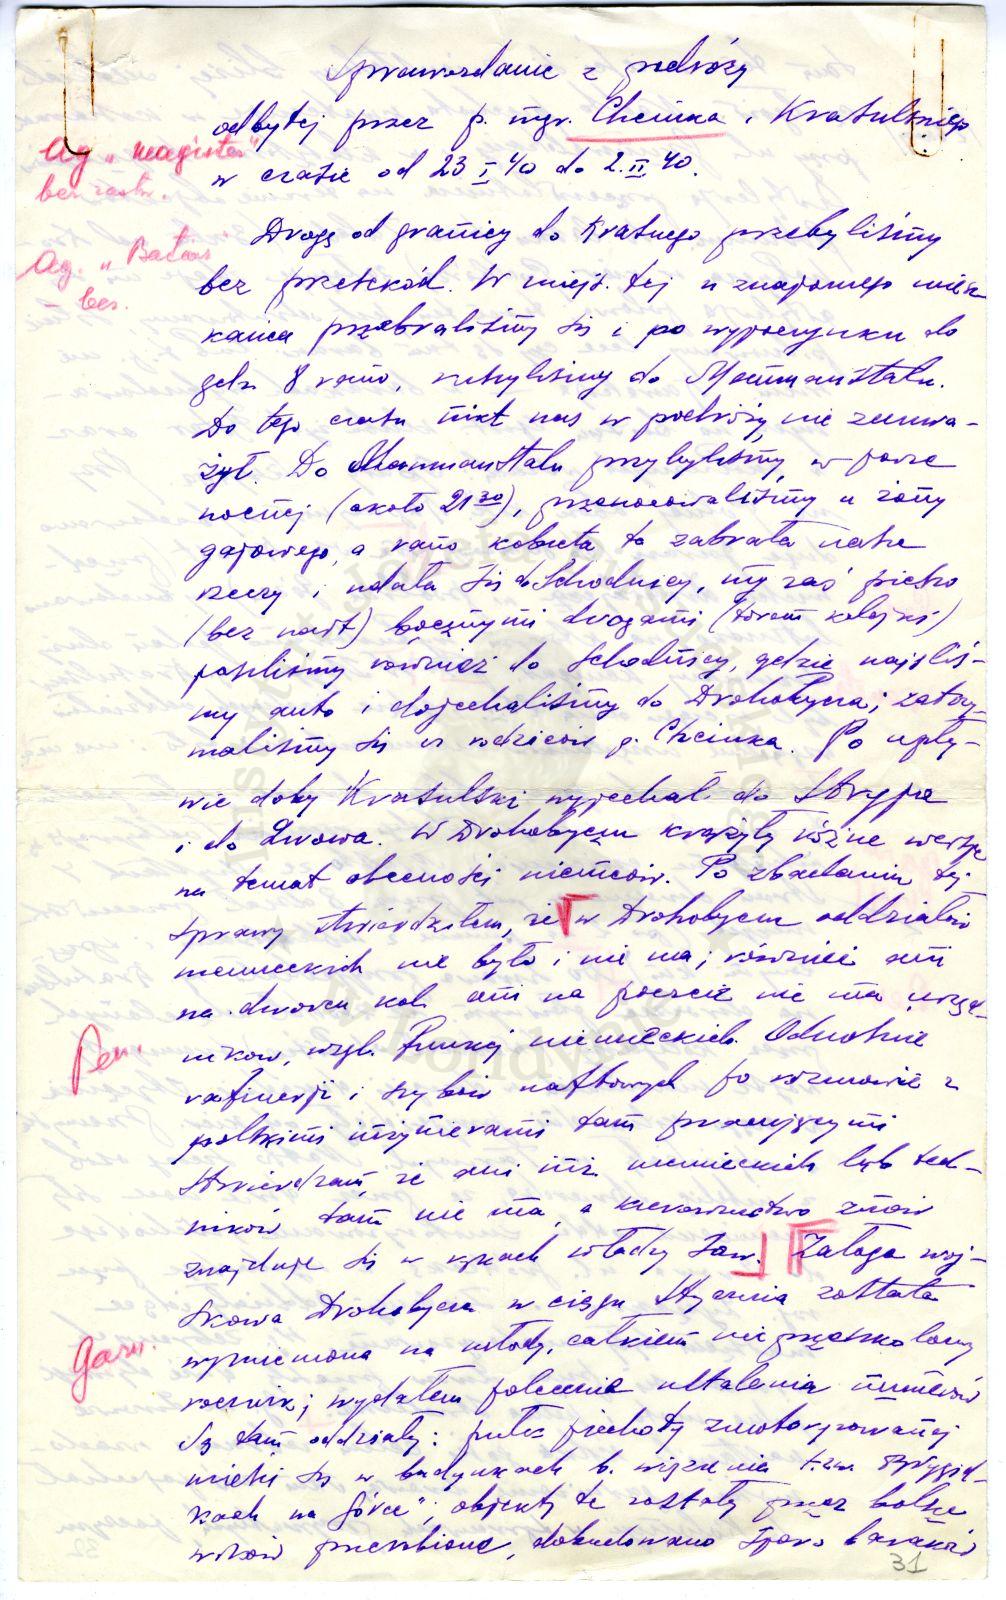 Sprawozdanie z podróży
odbytej przez p. mgr. Chciuka i Krasulskiego
w czasie od 23 I 40 do 2. II 40.
Ag „magister"
bez zastw.
Ag. „Batias"
– bez.
Drogę od granicy do Krasnego przebyliśmy
bez przeszkód. W miejsc. tej u znajomego miesz
kańca przebraliśmy się i po wypoczynku do
godz 8 rano, ruszyliśmy do Mannmanstalu.
Do tego czasu nikt nas w podróży nie zauwa-
żył. Do Mannmanstalu przybyliśmy w porze
nocnej (około 21 30), przenocowaliśmy u żony
gajowego, a rano kobieta ta zabrała nasze
rzeczy i udała się do Schodnicy, my zaś pieszo
(bez nart) bocznymi drogami (torem kolejki)
poszliśmy również do Schodnicy, gdzie najęliś-
my auto i dojechaliśmy do Drohobycza; zatrzy-
maliśmy się u rodziców p. Chciuka. Po upły-
wie doby Krasulski wyjechał do Stryja
i do Lwowa. W Drohobyczu krążyły różne wersje
na temat obecności niemców. Po zbadaniu tej
sprawy stwierdziłem, że w Drohobyczu oddziałów
niemieckich nie było i nie ma; również ani
na dworcu kol. ani na poczcie nie ma urzęd-
ników, wzgl. funkcj niemieckich. Odnośnie
Pen.
rafinerji i szybów naftowych po rozmowie z
polskimi inżynierami tam pracującymi
stwierdzam, że ani inż. niemieckich lub tech-
ników tam nie ma, a kierownictwo znów
znajduje się w rękach władzy sow. Załoga woj-
skowa Drohobycza w ciągu stycznia została
Garn.
wymieniona na młody, całkiem nieprzeszkolony
rocznik; wydałem polecenie ustalenia numerów
Są tam oddziały: pułk piechoty zmotoryzowanej
mieści się w budynkach b. więzienia t.zw. Brygid-
kach na Górce"; objekty te zostały przez bolsze
wików przerobione, dobudowano sporo baraków
31